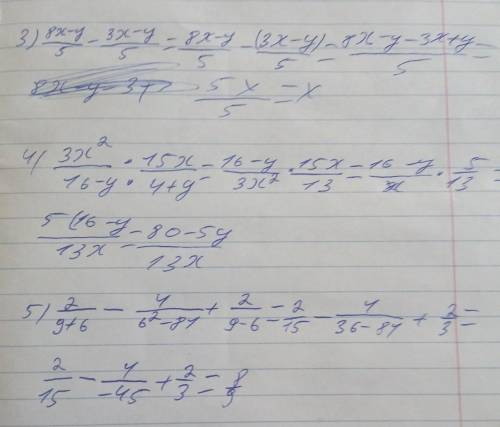 3) (8x-y)/5 - (3x-y)/5 = (8x-y)/5 - (3x-y)/5 = (8x-y-3x+y)/5 =
5x/5 = x
4) 3x²/(16-y) : 15x/(4+y) = (16-y)/3x² · 15x/13 = (16-y)/x · 5/13 =
5(16-y/13x = (80-5y)/13x
5) 2/(9+6) - 4/(6²-81) + 2/(9-6) = 2/15 - 4/(36-81) + 2/3 =
2/15 - 4/(-45) + 2/3 = 8/9